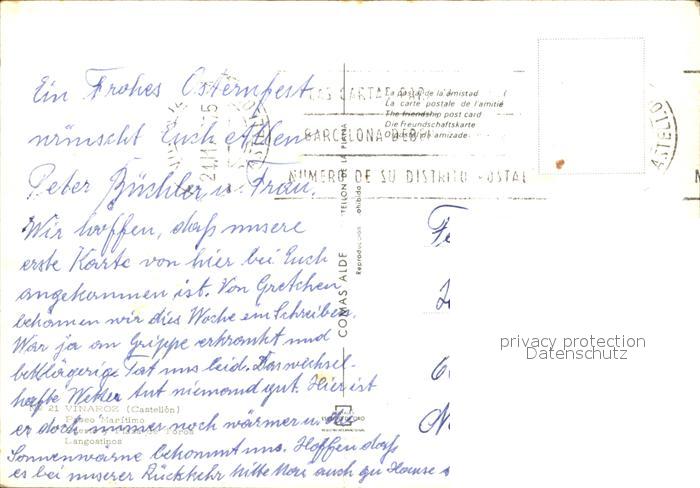 Ein Frohes Osternfest
wünscht Euch Allen
Peter Büchler u. Frau.
Wir hoffen, daß unsere
erste Karte von hier bei Euch
angekommen ist. Von Gretchen
bekamen wir dies Woche ein Schreiben.
War ja an Grippe erkrankt und
bettlägerig. Tat uns leid. Das wechsel-
hafte Wetter tut niemand gut. Hier ist
er doch immer noch wärmer u. die
Sonnenwärme bekommt uns. Hoffen daß
es bei unserer Rückkehr Mitte Mai auch zu Hause
21 VINAROZ (Castellón)
Paseo Marítimo
Toros
Langostinos
COMAS ALDE
CASTELLON DE LA PLANA
Reproducción prohibida
LAS CARTAS PARA
BARCELONA DEBEN
NUMERO DE SU DISTRITO POSTAL
La postal de la amistad
La carte postale de l'amitié
The friendship post card
Die Freundschaftskarte
O postal da amizade
privacy protection
Datenschutz